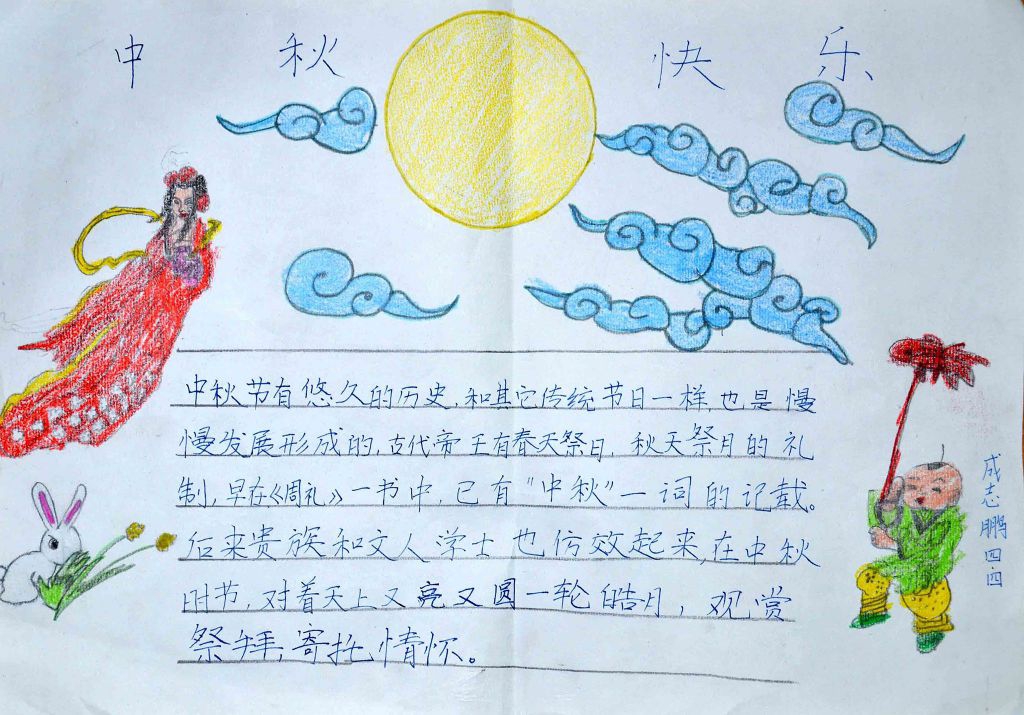 中秋快乐
中秋节有悠久的历史,和其它传统节日一样,也是慢
慢发展形成的,古代帝王有春天祭日,秋天祭月的礼
制,早在《周礼》一书中,已有“中秋”一词的记载。
后来贵族和文人学士也仿效起来,在中秋
时节,对着天上又亮又圆一轮皓月,观赏
祭拜,寄托情怀。
成志鹏四四